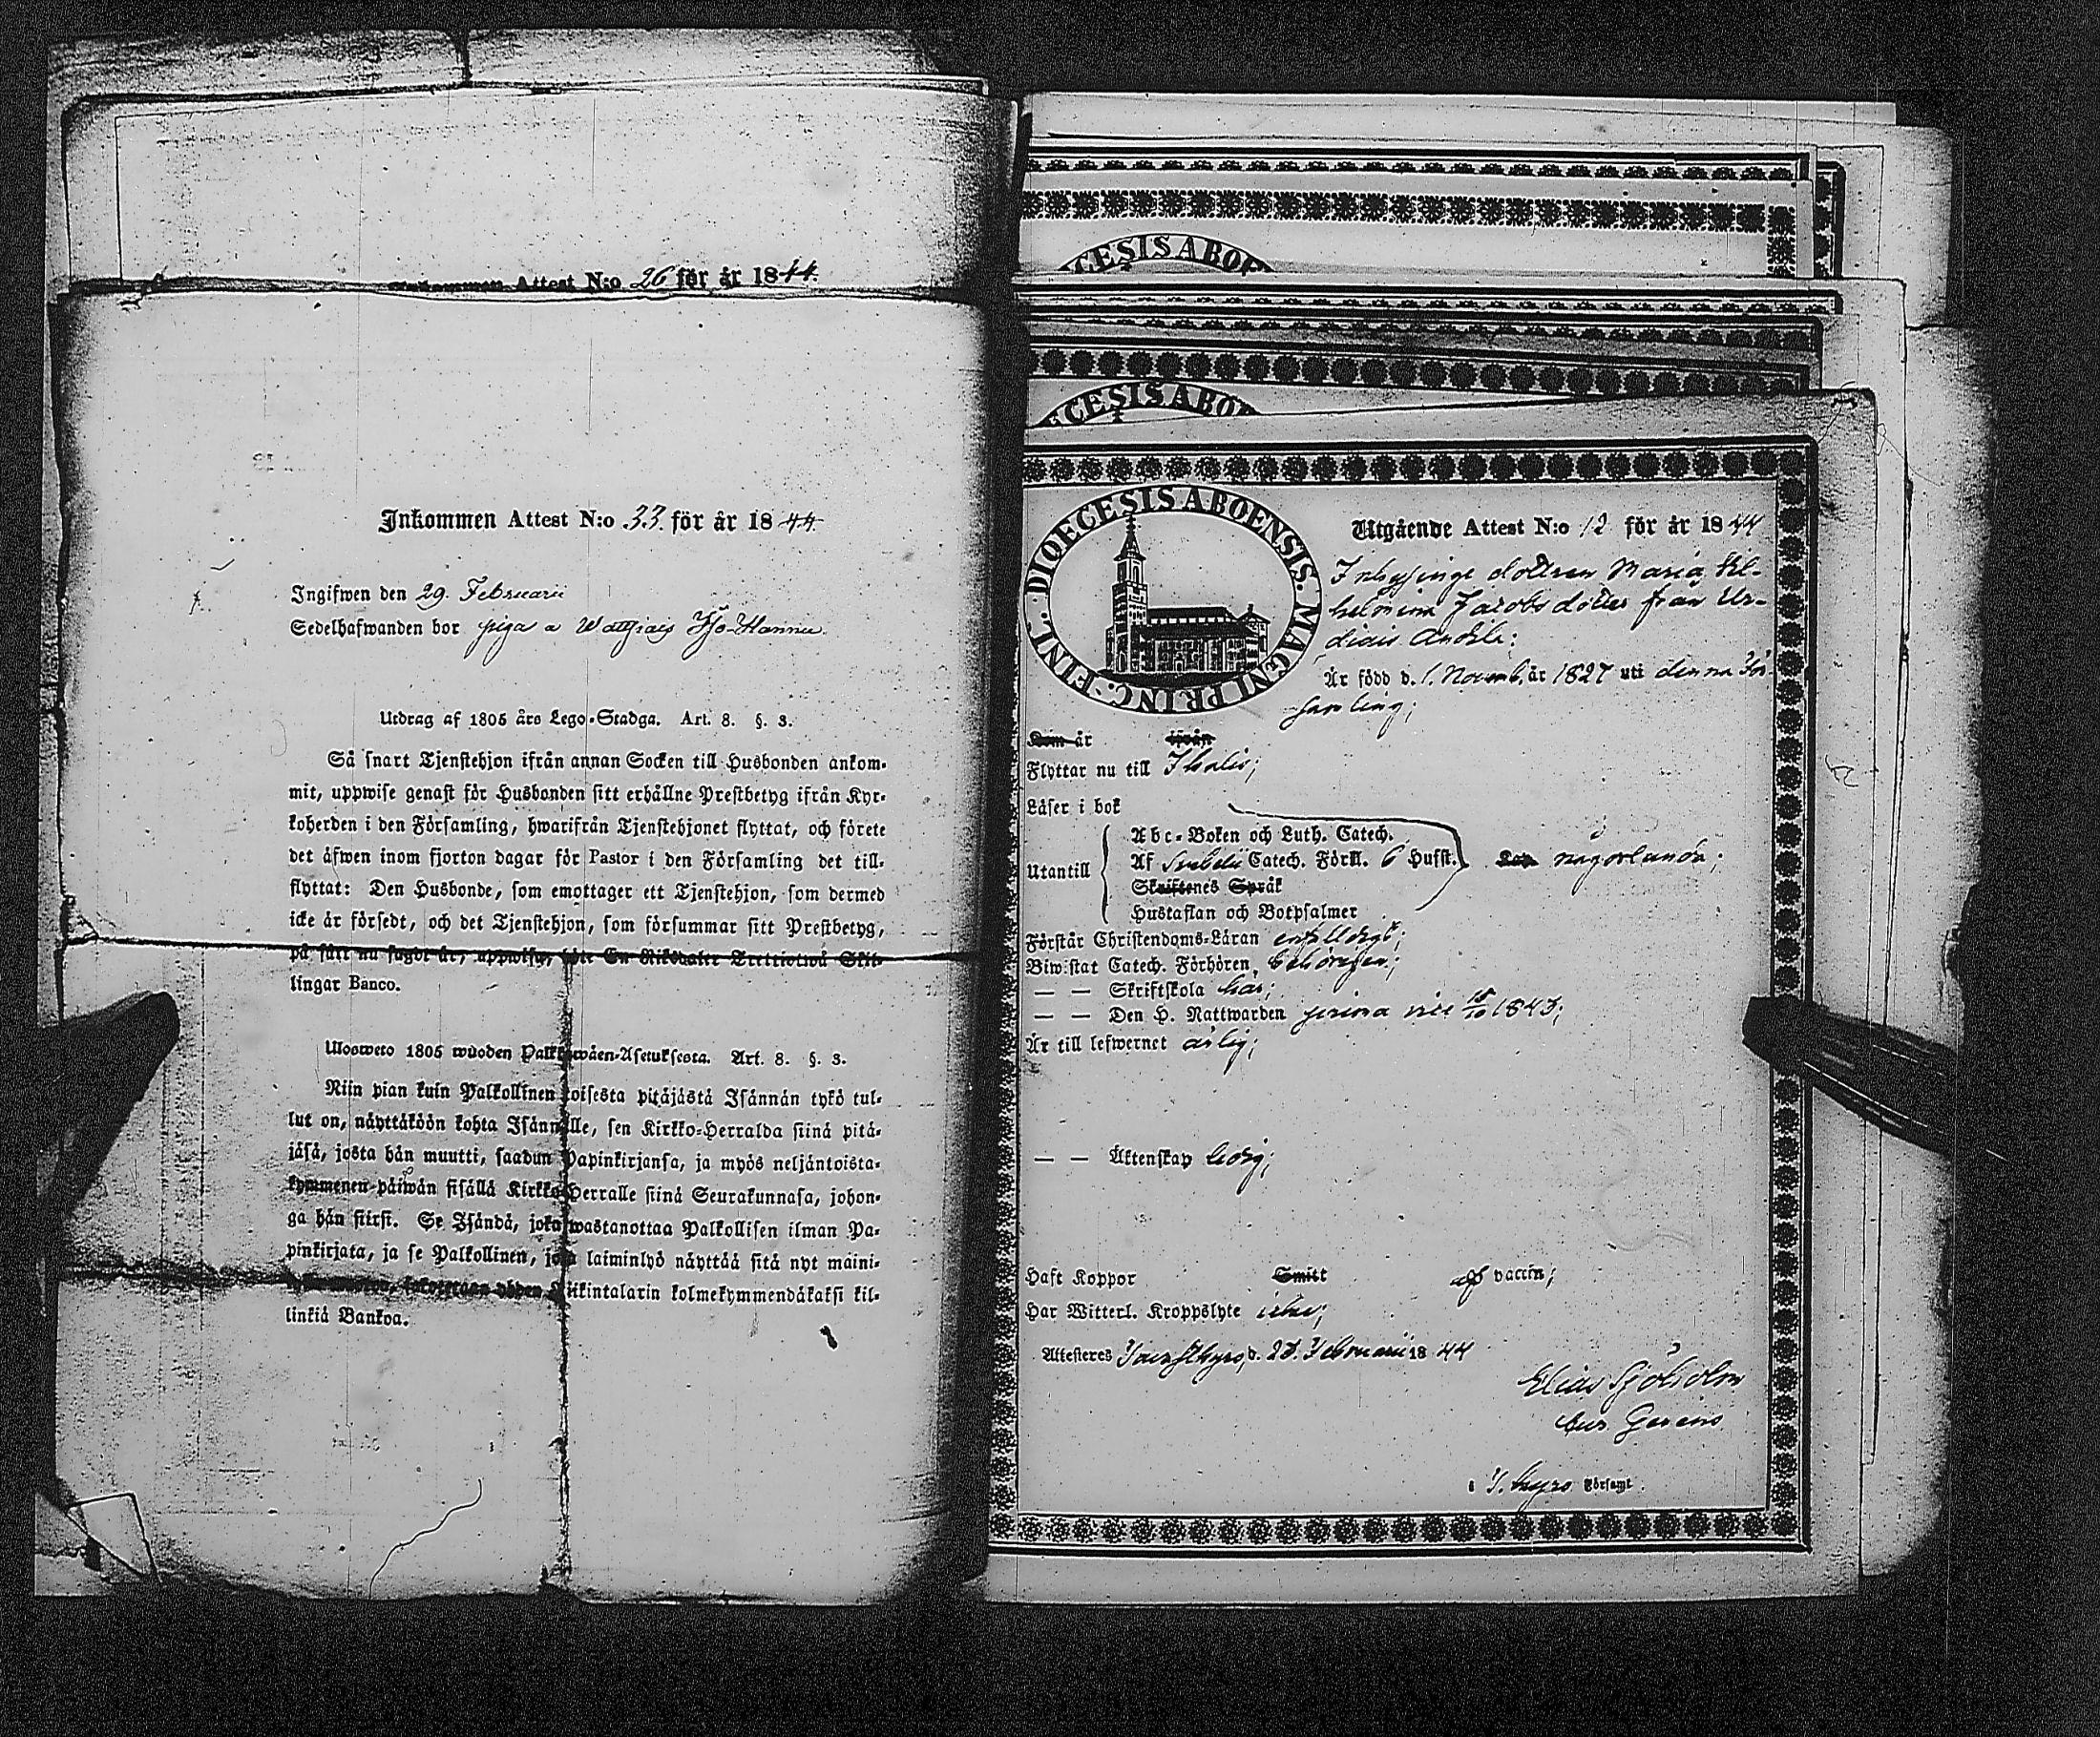 Attest N:o 26 för år 1844.
Inkommen Attest N:o 33. för år 1844
Ingifwen den 29. Februarii
Sedelhafwanden bor piga a
Utdrag af 1805 års Lego-Stadga. Art. 8. §. 3.
Så snart Tjenstehjon ifrån annan Socken till Husbonden ankom-
mit, uppwise genast för Husbonden sitt erhållne Prestbetyg ifrån Kyr-
koherden i den Församling, hwarifrån Tjenstehjonet flyttat, och förete
det äfwen inom fjorton dagar för Pastor i den Församling det till-
flyttat: Den Husbonde, som emottager ett Tjenstehjon, som dermed
icke är försedt, och det Tjenstehjon, som försummar sitt Prestbetyg,
på sätt nu sagdt är, uppwisa, böte En Riksdaler Trettiotwå Skil-
lingar Banco.
Ulosweto 1805 wuoden Palkkawäen-Asetuksesta. Art. 8. §. 3.
Niin pian kuin Palkollinen toisesta pitäjästä Isännän tykö tul-
lut on, näyttäköön kohta Isännälle, sen Kirkko-Herralda siinä pitä-
jäsä, josta hän muutti, saadun Papinkirjansa, ja myös neljäntoista-
kymmenen päiwän sisällä Kirkko-Herralle siinä Seurakunnasa, johon-
ga hän siirsi. Se Isändä, joka wastanottaa Palkollisen ilman Pa-
pinkirjata, ja se Palkollinen, joka laiminlyö näyttää sitä nyt maini-
Riikintalarin kolmekymmendäkaksi kil-
linkiä Bankoa.
ŒCESIS ABOE
ŒCESIS ABOE
DIOECESIS ABOENSIS. MAGNI PRINC. FINL.
Utgående Attest N:o 12 för år 1844
dottren Maria Wil-
helmina Jacobsdotter från Ur-
diais Anttila;
Är född d. 1. Novemb. år 1827 uti denna För-
samling;
Kom år ifrån
Flyttar nu till Ikalis;
Läser i bok
Utantill
Abc-Boken och Luth. Catech.
Af Svebelii Catech. Förkl. 6 Hufst. någorlunda;
Skriftenes Språk
Hustaflan och Botpsalmer
Förstår Christendoms-Läran enfaldigt;
Biwistat Catech. Förhören behörigen;
— — Skriftskola har;
— — Den H. Nattwarden prima vice 15/10 1843;
Är till lefwernet ärlig;
— — Äktenskap ledig;
Haft Koppor Smitt af vaccin;
Har Witterl. Kroppslyte icke;
Attesteres Tavastkyro, d. 28. Februarii 1844
Elias Sjöholm
Cur. Gerens
i T. kyro Församl.